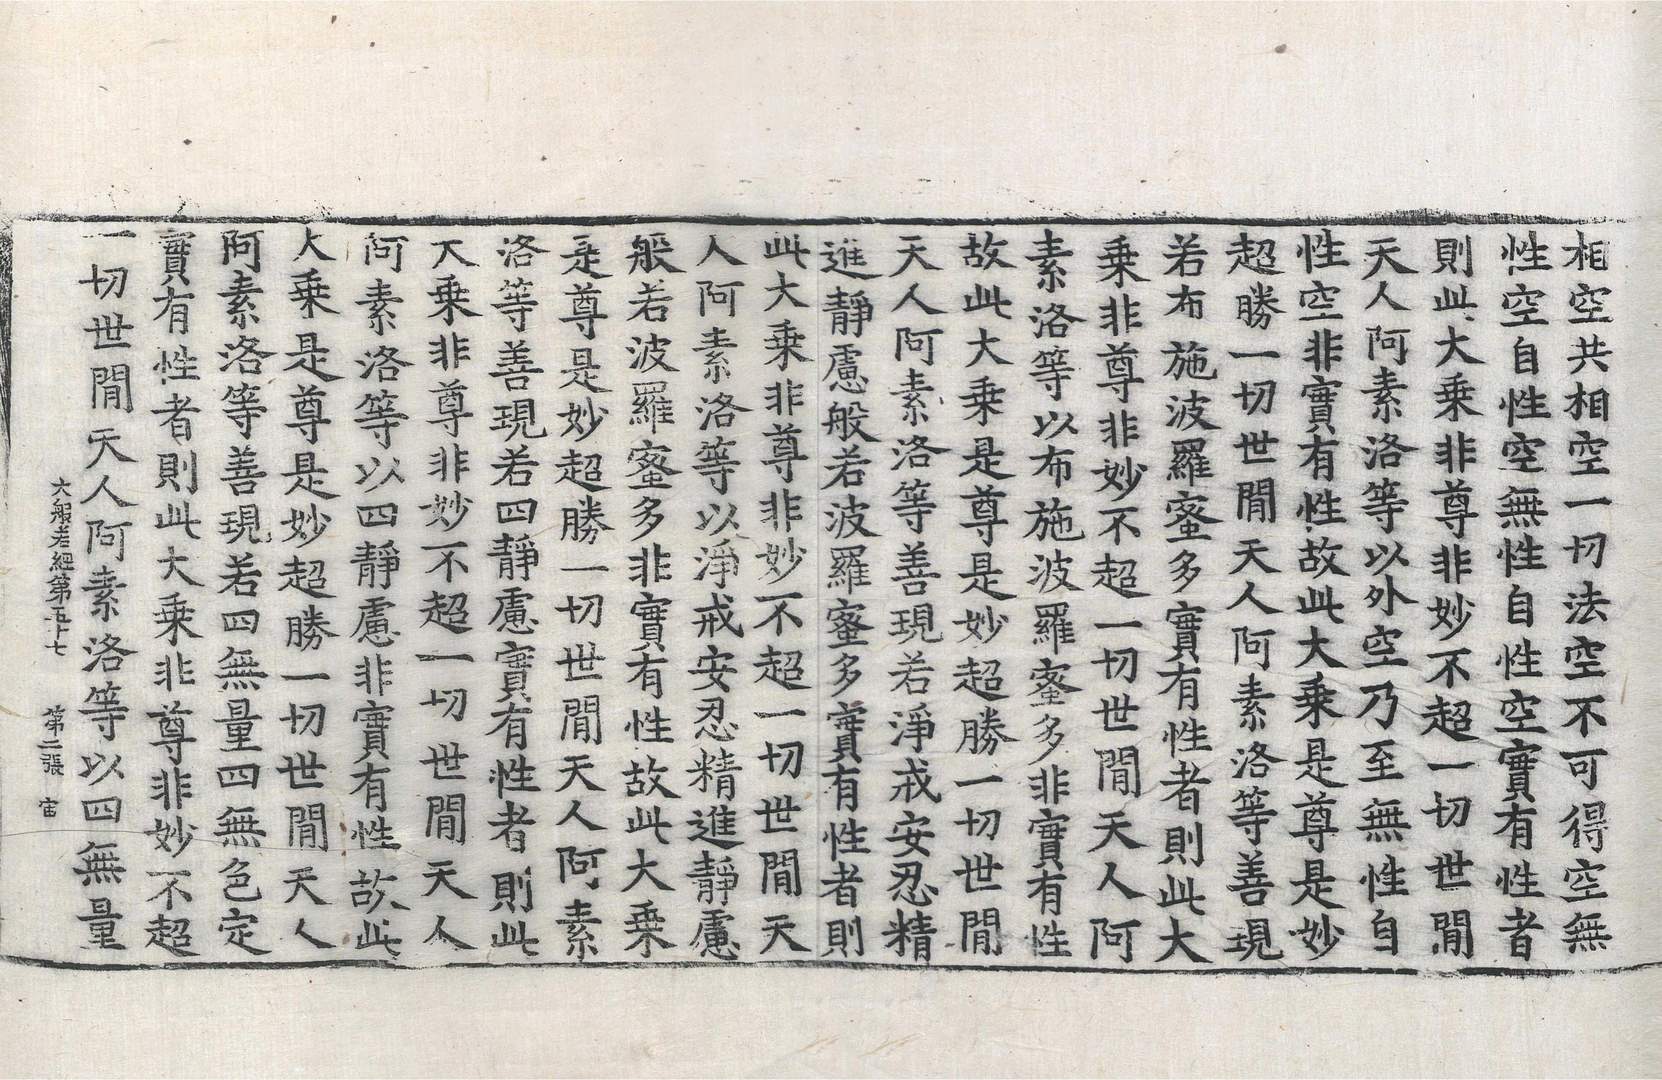 相空共相空一切法空不可得空無
性空自性空無性自性空實有性者
則此大乗非尊非妙不超一切世間
天人阿素洛等以外空乃至無性自
性空非實有性故此大乗是尊是妙
超勝一切世間天人阿素洛等善現
若布施波羅蜜多實有性者則此大
乗非尊非妙不超一切世間天人阿
素洛等以布施波羅蜜多非實有性
故此大乗是尊是妙超勝一切世間
天人阿素洛等善現若淨戒安忍精
進靜慮般若波羅蜜多實有性者則
此大乗非尊非妙不超一切世間天
人阿素洛等以淨戒安忍精進靜慮
般若波羅蜜多非實有性故此大乗
是尊是妙超勝一切世間天人阿素
洛等善現若四靜慮實有性者則此
大乗非尊非妙不超一切世間天人
阿素洛等以四靜慮非實有性故此
大乗是尊是妙超勝一切世間天人
阿素洛等善現若四無量四無色定
實有性者則此大乗非尊非妙不超
一切世間天人阿素洛等以四無量
大般若經第五十七 第二張 宙